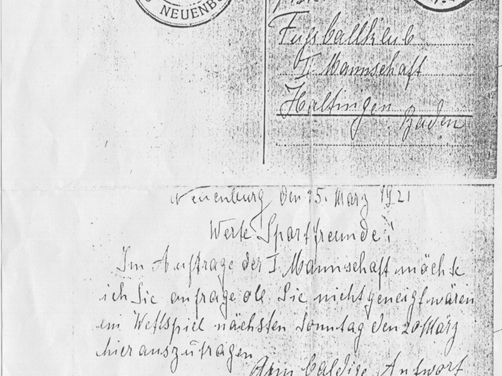 NEUENB
Fussballklub
I Mannschaft
Haltingen
Baden
Neuenburg den 15. März 1921
Werte Sportfreunde!
Im Auftrage der I. Mannschaft möchte
ich Sie anfrage ob Sie nicht geneigt wären
ein Wettspiel nächsten Sonntag den 20 März
hier auszutragen
baldige Antwort